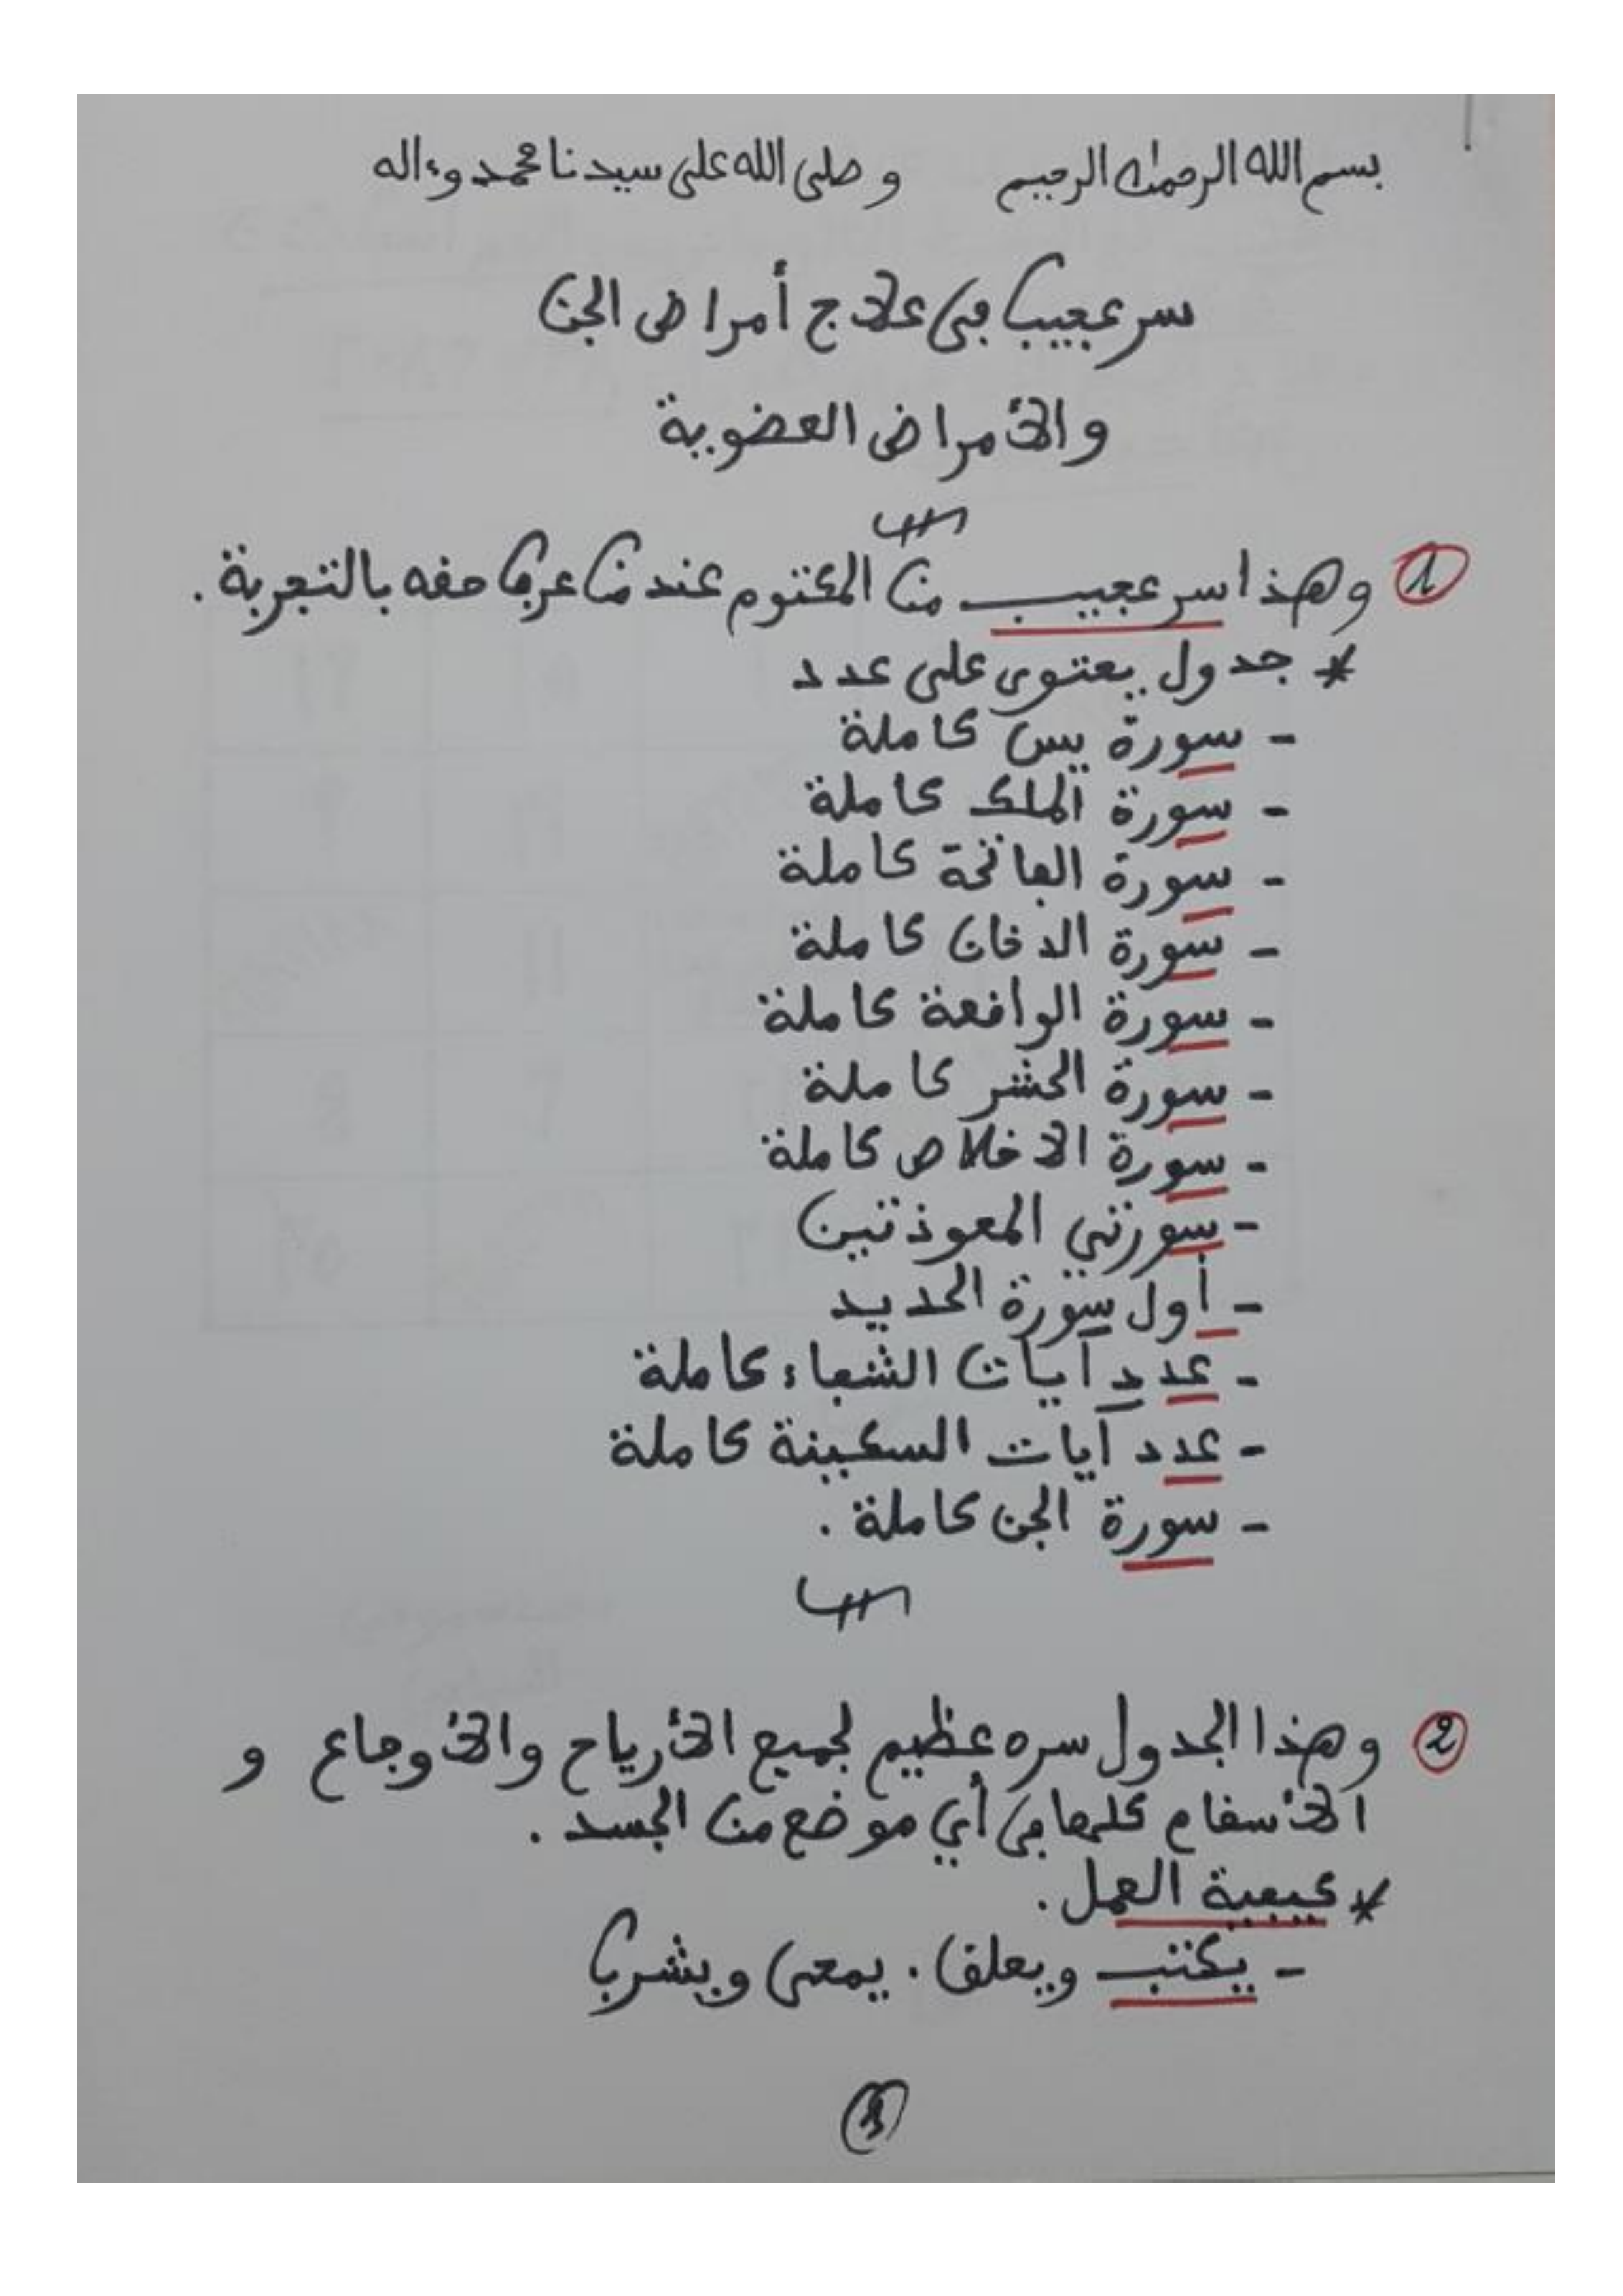 بسم الله الرحمان الرحيم وصلى الله على سيدنا محمد وءاله
سر عجيب في علاج أمراض الجن
والأمراض العضوية
1 وهذا سر عجيب من المكتوم عند من عرف حقه بالتجربة .
* جدول يحتوي على عدد
- سورة يس كاملة
- سورة الملك كاملة
- سورة الفاتحة كاملة
- سورة الدخان كاملة
- سورة الواقعة كاملة
- سورة الحشر كاملة
- سورة الاخلاص كاملة
- سورتي المعوذتين
- أول سورة الحديد
- عدد آيات الشفاء كاملة
- عدد آيات السكينة كاملة
- سورة الجن كاملة .
2 وهذا الجدول سره عظيم لجميع الأرياح والأوجاع و
الأسقام كلها في أي موضع من الجسد .
* كيفية العمل .
- يكتب ويعلق . يمحى ويشرب